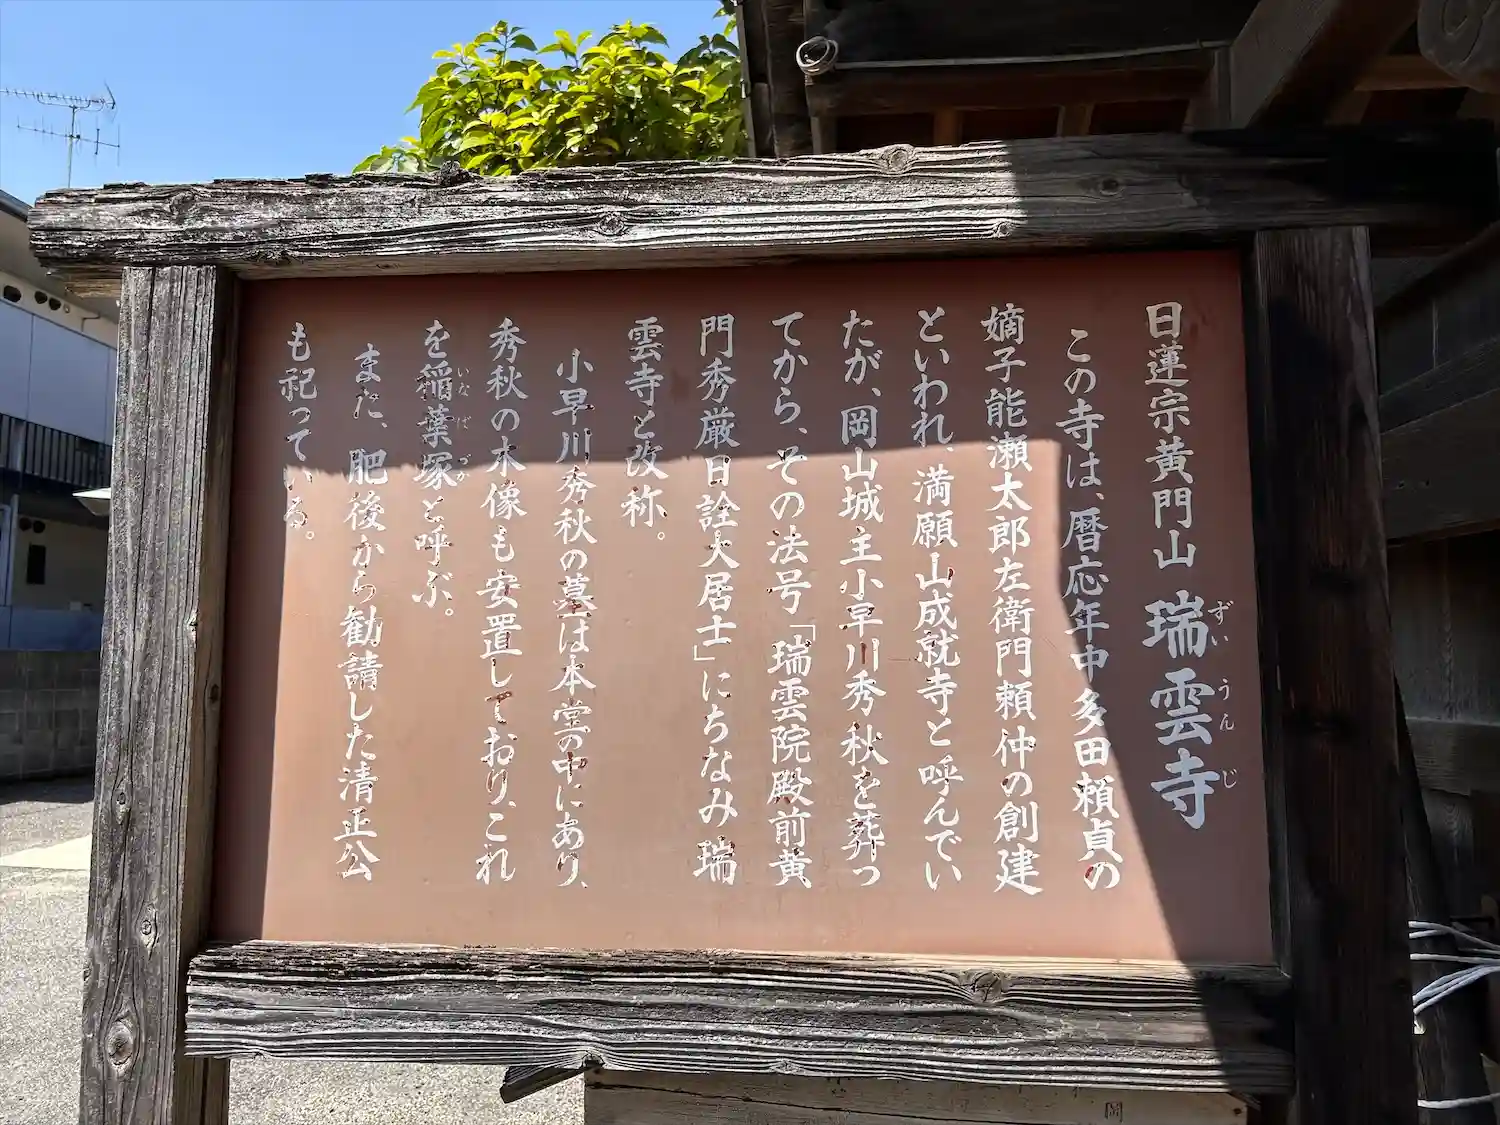 日蓮宗黄門山 瑞雲寺
ずいうんじ
この寺は、暦応年中多田頼貞の
嫡子能瀬太郎左衛門頼仲の創建
といわれ、満願山成就寺と呼んでい
たが、岡山城主小早川秀秋を葬っ
てから、その法号「瑞雲院殿前黄
門秀厳日詮大居士」にちなみ瑞
雲寺と改称。
小早川秀秋の墓は本堂の中にあり、
秀秋の木像も安置しており、これ
を稲葉塚と呼ぶ。
いなばづか
また、肥後から勧請した清正公
も祀っている。